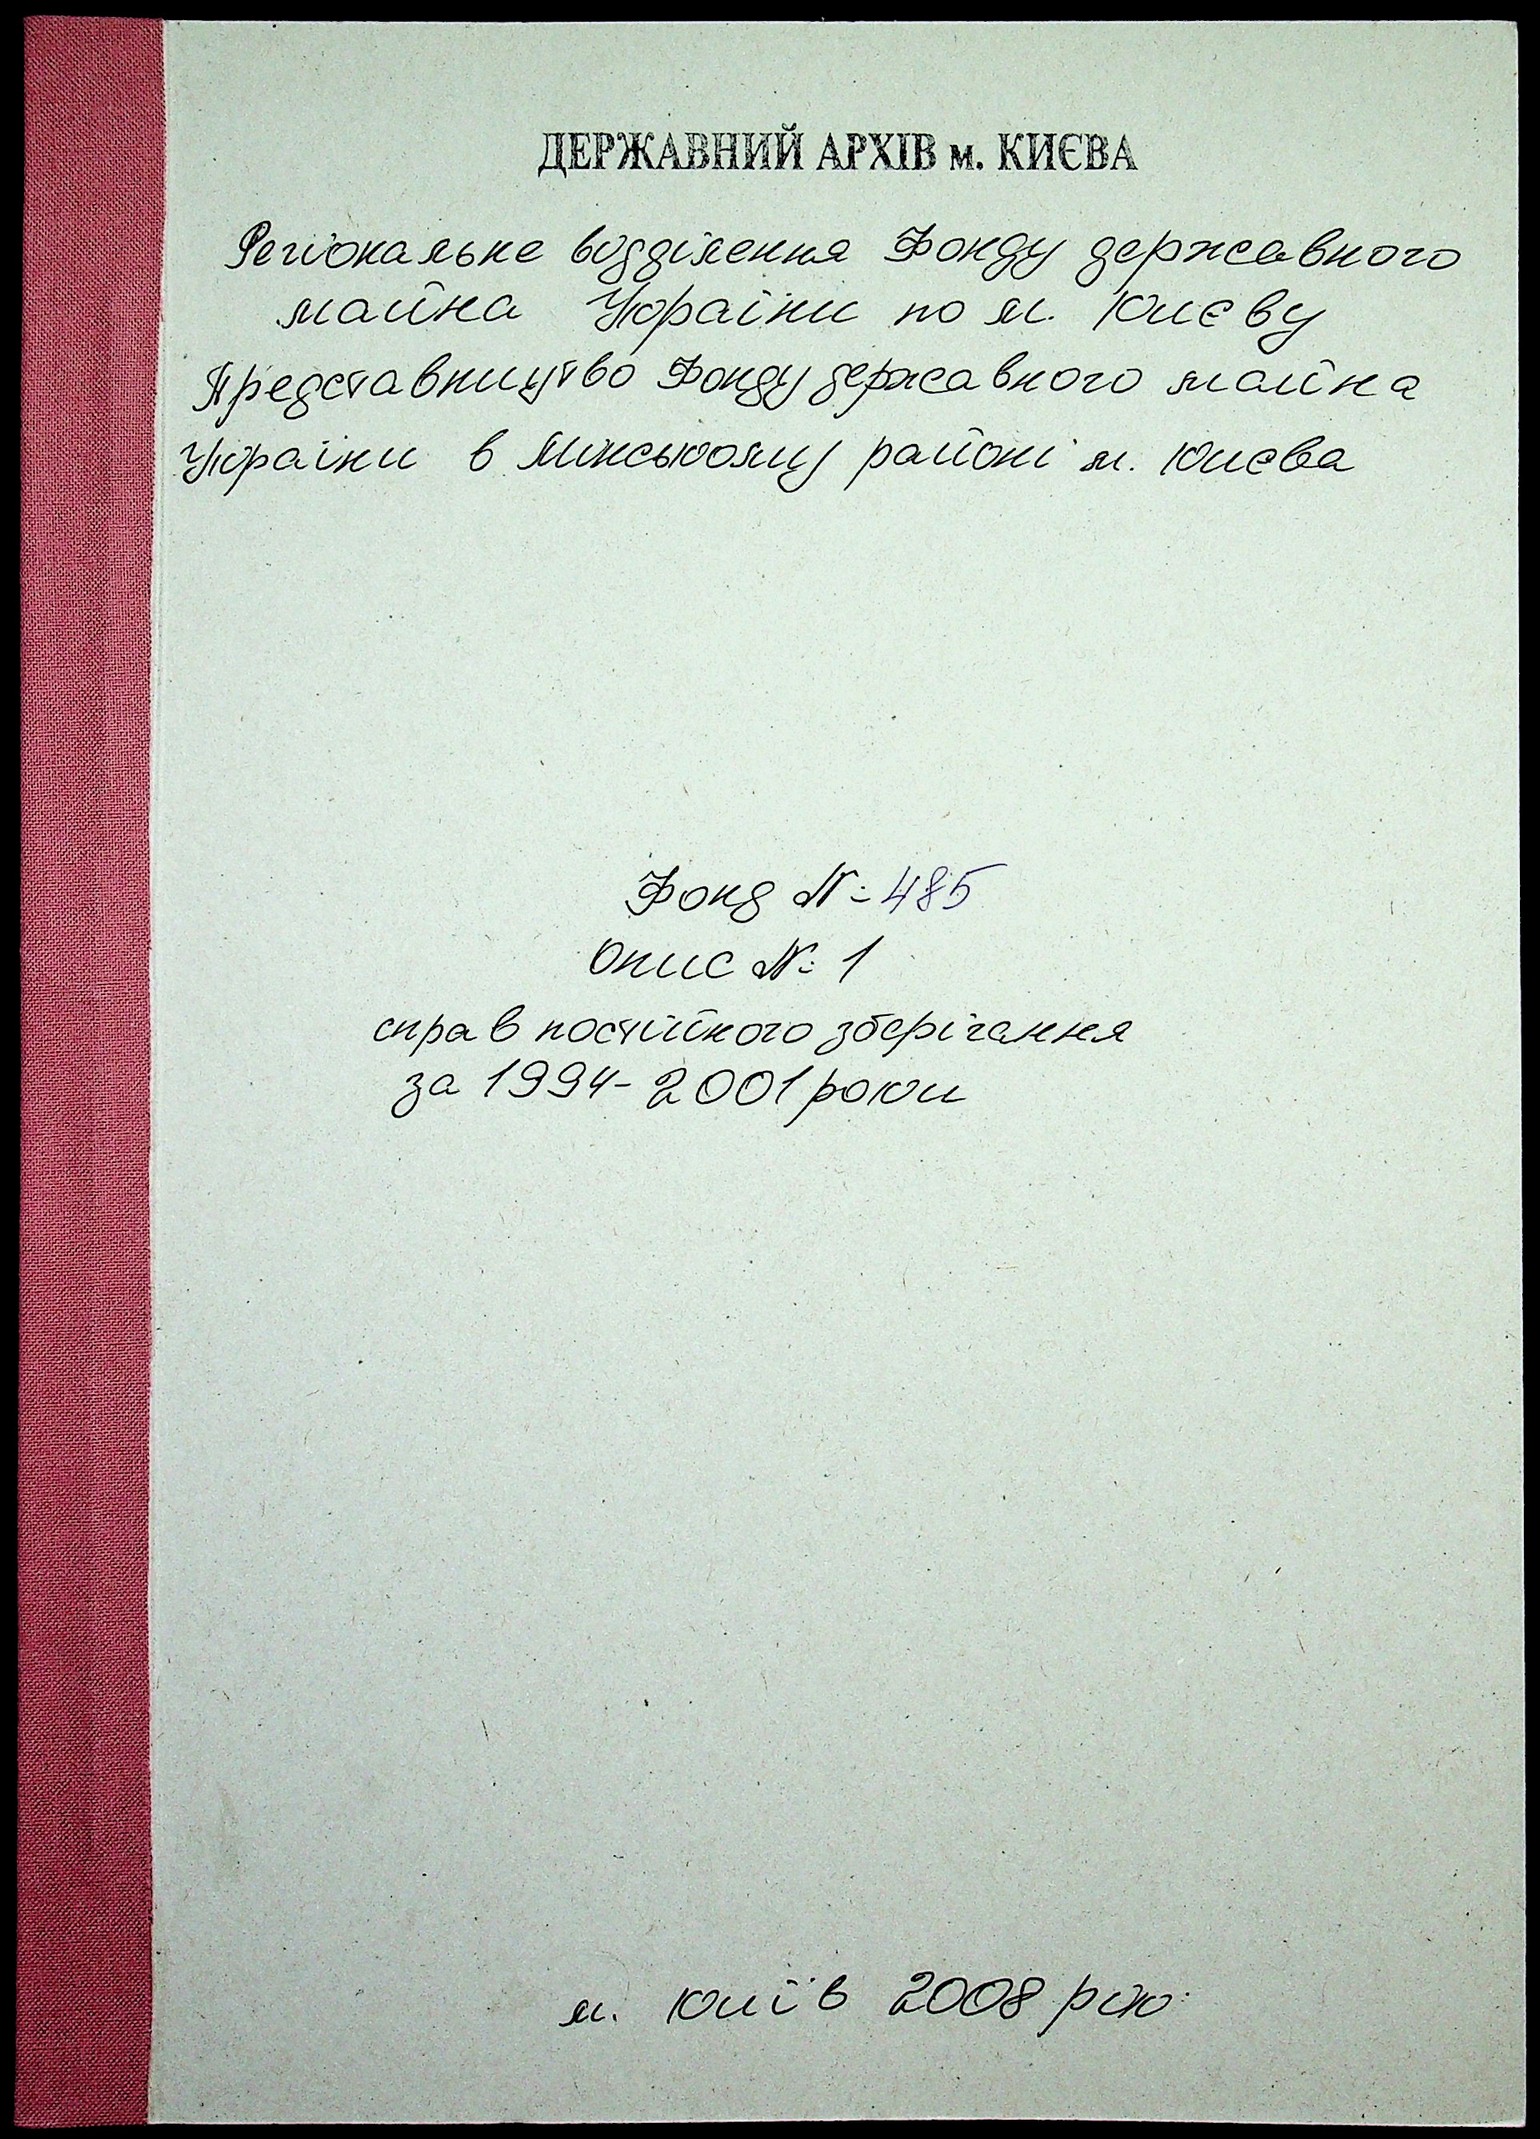 ДЕРЖАВНИЙ АРХІВ м. КИЄВА
Регіональне відділення Фонду державного
майна України по м. Києву
Представництво Фонду державного майна
України в Мінському районі м. Києва
Фонд № 485
Опис № 1
справ постійного зберігання
за 1994-2001 роки
м. Київ 2008 рік